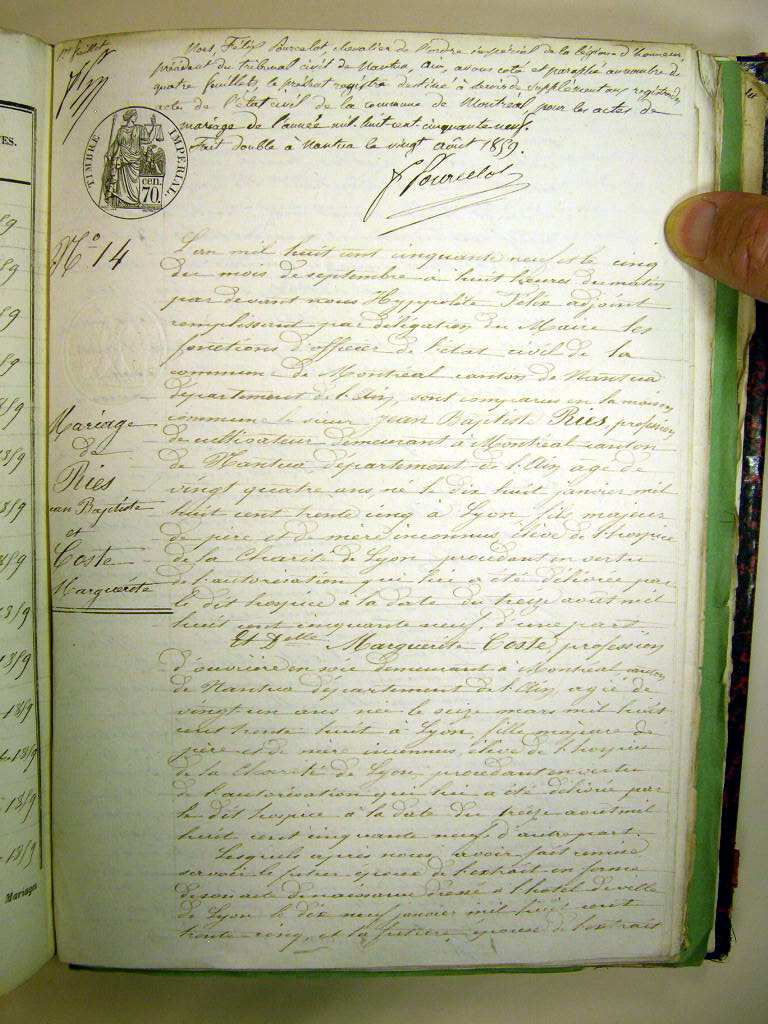 1er feuillet
Nous, Félix Pourcelot, chevalier de l'ordre impérial de la légion d'honneur
président du tribunal civil de Nantua, Ain, avons coté et paraphé au nombre de
quatre feuillets, le présent registre destiné à servir de supplément aux registres des
acte de l'état civil de la commune de Montréal pour les actes de
mariage de l'année mil huit cent cinquante neuf.
Fait double à Nantua le vingt août 1859.
F Pourcelot
TIMBRE IMPERIAL
cen.
70.
N° 14
L'an mil huit cent cinquante neuf et le cinq
du mois de septembre à huit heures du matin
par devant nous Hyppolite Félix adjoint
remplissant par délégation du Maire les
fonctions d'officier de l'état civil de la
commune de Montréal canton de Nantua
département de l'Ain, sont comparus en la maison
commune le sieur Jean Baptiste Ries, profession
de cultivateur demeurant à Montréal canton
de Nantua, département de l'Ain âgé de
vingt quatre ans, né le dix huit janvier mil
huit cent trente cinq à Lyon fils majeur
de père et de mère inconnus, élève de l'hospice
de la Charité de Lyon procédant en vertu
de l'autorisation qui lui a été délivrée par
le dit hospice à la date du treize août mil
huit cent cinquante neuf d'une part
Et Delle Marguerite Coste, profession
d'ouvrière en soie demeurant à Montréal canton
de Nantua département de l'Ain, agée de
vingt un ans née le seize mars mil huit
cent trente huit à Lyon, fille majeure de
père et de mère inconnus, élève de l'hospice
de la Charité de Lyon, procédant en vertu
de l'autorisation qui lui a été délivrée par
le dit hospice à la date du treize août mil
huit cent cinquante neuf d'autre part.
Lesquels après nous avoir fait remise
savoir le futur époux de l'extrait en forme
de son acte de naissance dressé à l'hotel de ville
de Lyon le dix neuf janvier mil huit cent
trente cinq, et la future épouse de l'extrait
Mariage
de
Ries
Jean Baptiste
et
Coste
Marguerite
Mariages